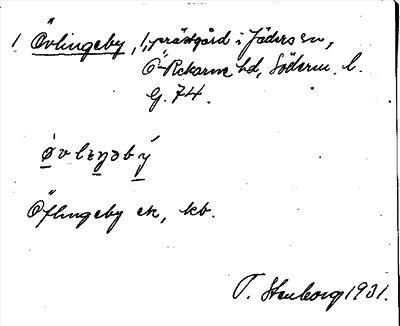 1 Övlingeby, f. prästgård i Jäders sn,
Ö-Rekarne hd, Söderm. l.
G. 74.
ø̀vlɛŋəbý
Öflingeby ek, kb.
T. Stenborg 1931.